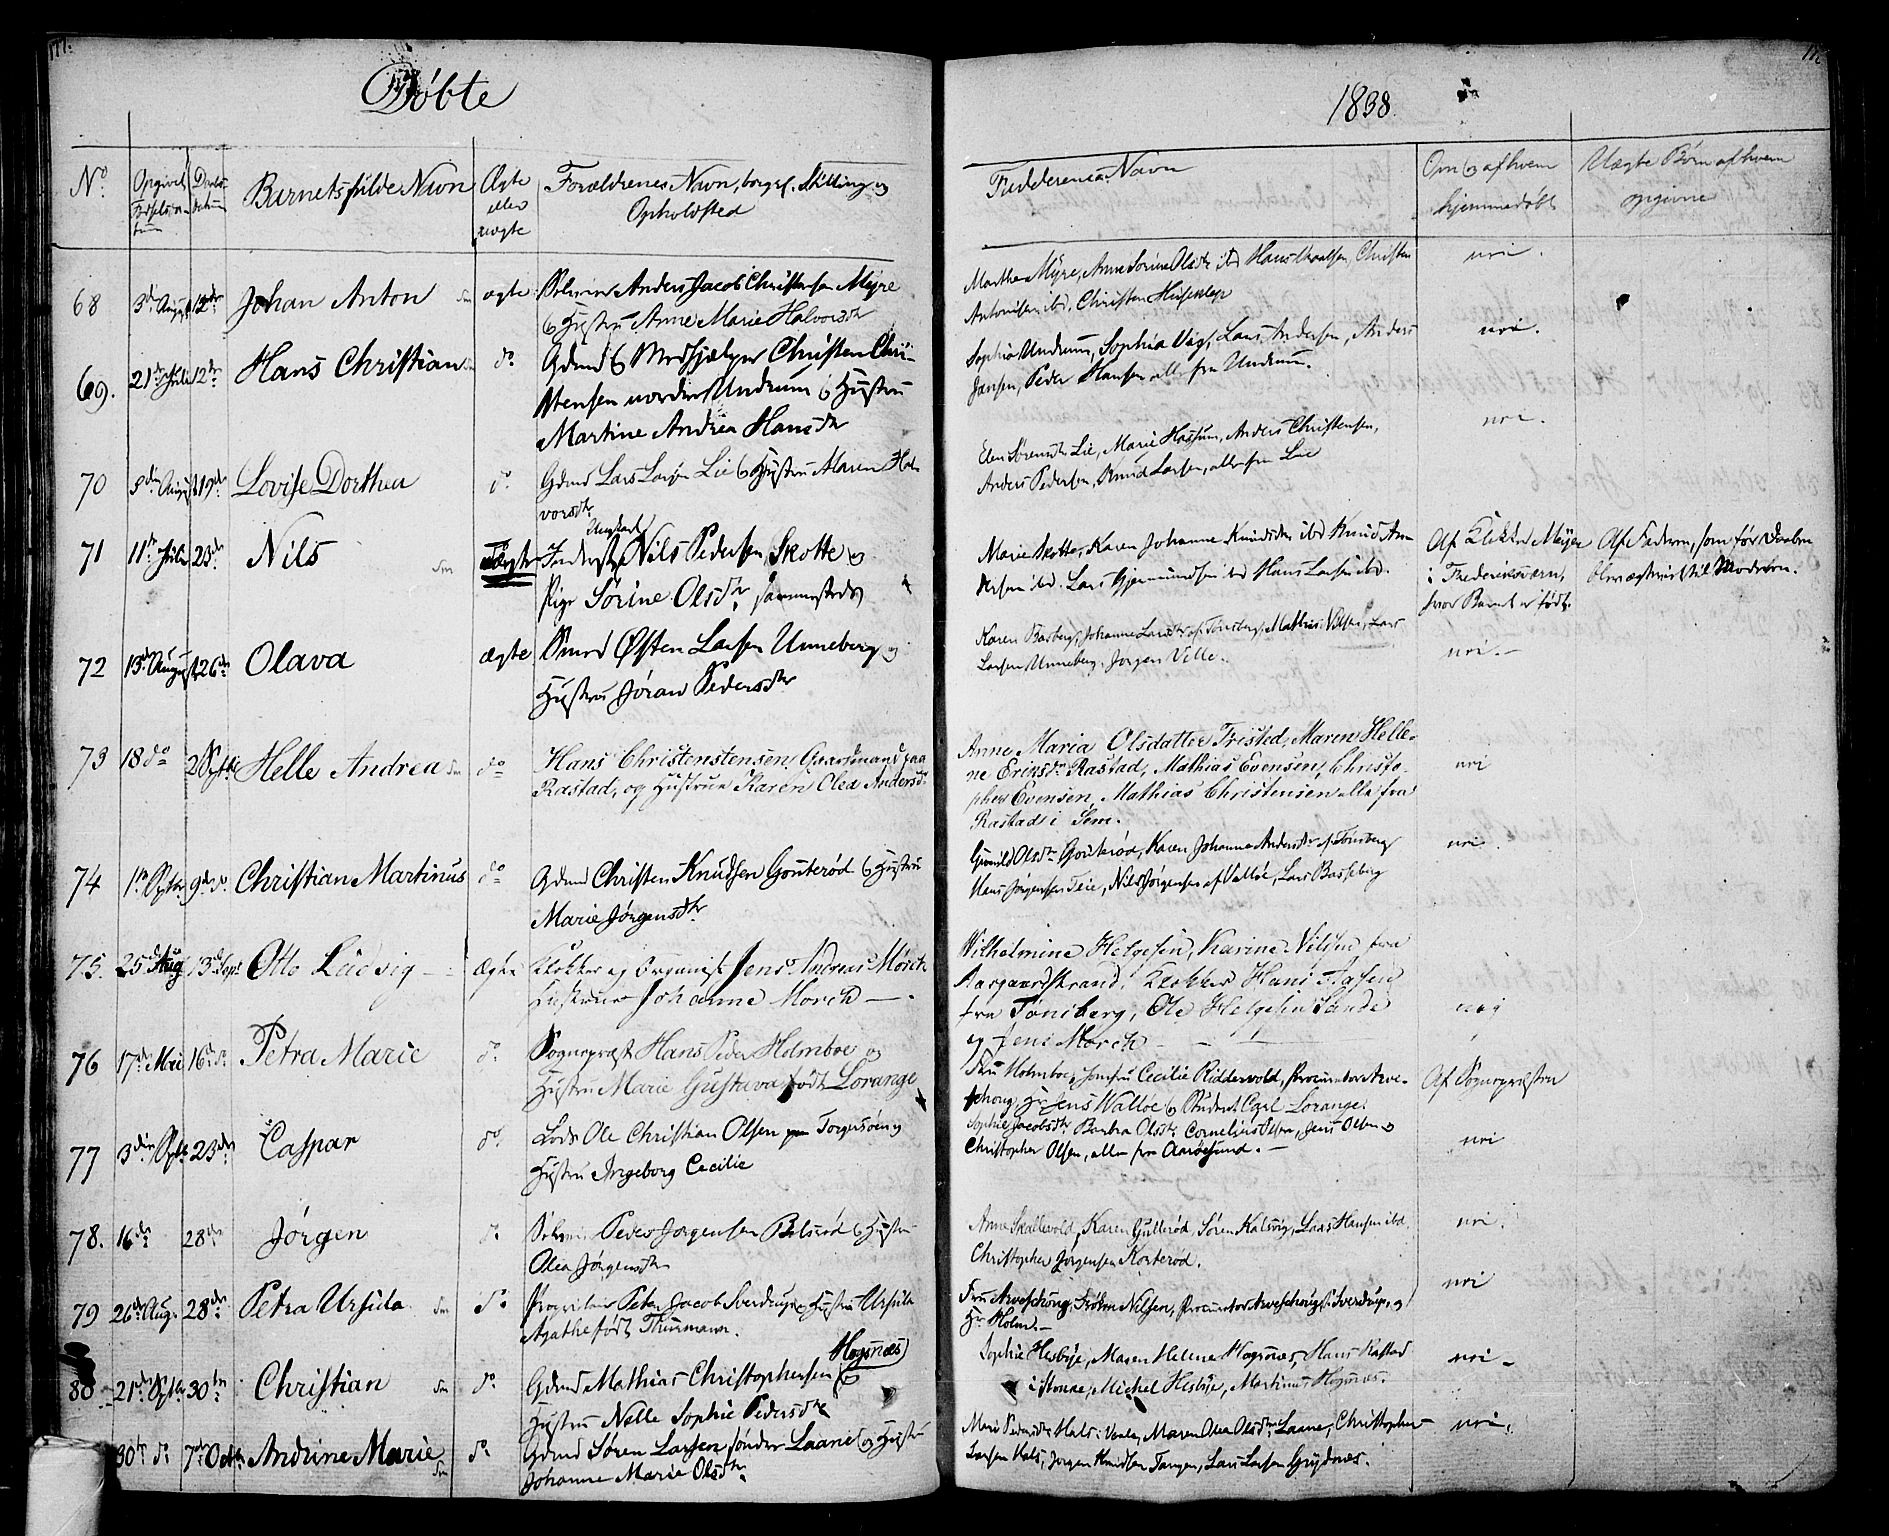 Døbte
1838.
No
Barnets fulde Navn
Ægte eller uægte
Forældrenes Navn, borgerl. Stilling og Opholdsted
Faddernes Navn
Om og af hvem hjemmedøbt
Uægte Børn af hvem opgivne
68 3die August 12te Johan Anton ægte Anders Jacob Christensen Myre
& Hustru Anne Marie Halvorsdtr
Marthe Myre, Anne Sorine Olsdtr ibd Hans Christen
Antonisen ibd, Christen
nei.
69. 21de Juli 12te Hans Christian do Gdmd & Medhjælper Christen Chri-
stensen nordre Undrum & Hustru
Martine Andrea Hansdtr
Sophie Undrum, Sophia Lars Andersen, Anders
Jansen, Peder Hansen alle fra Undrum.
nei.
70 5de August 19de Lovise Dorthea do Gdmd Lars Larsen Lie & Hustru Maren Hal-
vorsdtr
Elen Sørensdtr Lie, Marie Hassum, Anders Christensen,
Anders Pedersen, Knud Larsen, alle fra Lie
nei.
71 11te Juli 23de Nils Uægte Ungkarl
Nils Pedersen Skotte og
Pige Sørine Olsdtr sammesteds
Marie Skotte, Karen Johanne Knudsdtr ibd Knud An-
dersen ibd. Lars Gjermundsen ibd Hans Larsen ibd.
Af Meyer
i Frederiksværn,
hvor Barnet er født.
Af Faderen, som før Daaben
til Moderen.
72 13de August 26de Olava ægte Østen Larsen Unneberg og
Hustru Jøran Pedersdtr
Karen Basberg, Johanne Larsdtr af Tønsberg, Mathis Nilsen, Lars
Larsen Unneberg. Jørgen Velle.
nei.-
73 18 do 2 Septbr Helle Andrea do Hans Christenstensen, Gaardmand paa
Rastad, og Hustrue Karen Olea Andersdr
Anne Maria Olsdatter Tristed, Maren Helle-
ne Ericsdr Rastad, Mathias Evensen, Christo-
pher Evensen, Mathias Christensen alle fra
Rastad i Sem.
nei
74 1te Septbr 9de do. Christian Martinus do Gdmd Christen Knudsen Gouterød & Hustru
Marie Jørgensdtr
Gunild Olsdtr Gouterød, Karen Johanne Andersdtr af Tønsberg
Hans Jørgensen Teie, Nils Jørgensen af Valløe, Lars Basseberg
nei.
75. 25d Aug 13d Sept Otto Ludvig Ægte Klokker og Organist Jens Andreas Mørch
Hustrue Johanne Morch
Wilhelmine Helgesen, Karine Nilsen fra
Aasgaardstrand, Klokker Hans Aasen
fra Tønsberg, Ole Helgesen Sande
og Jens Morch
nei
76 17de Mai 16d do Petra Marie do. Sogneprest Hans Peder Holmboe og
Hustru Marie Gustava født Lorange
Fru Holmboe, Jomfru Cecilie Ridderwold, Procurator Arve-
schoug, Hr Jens Walløe & Student Carl Lorange.
Af Sognepræsten
77 3die Septbr 23de Caspar do. Lods Ole Christian Olsen Torgersøen og
Hustru Ingeborg Cecilie
Sophie Jacobsdtr Barbra Olsdtr Cornelius Olsen, Jens Olsen &
Christopher Olsen, alle fra Aarøesund.-
nei
78. 16de 28de Jørgen do. Peder Jørgensen Bilserød & Hustru
Olea Jørgensdtr
Anne Skallevold, Karen Gullerød, Søren Kalsvig, Lars Hansen ibd.
Christopher Jørgensen Korterød.
nei.
79 26de Aug. 28de Petra Ursula do Proprietair Peter Jacob Sverdrup & Hustru Ursula
Agathe født Thurmann.
Fru Arveschoug, Frøken Nilsen, Procurator Arveschoug, Sverdrup, og
Hr Holm.-
nei
80 21de Septbr 30te Christian do. Gdmd Mathias Christophersen Hogsnæs &
Hustru Nelle Sophie Pedersdtr
Sophie Hesbye, Maren Helene Hogsnæs, Hans Rastad
i Michel Hesbye, Martinus Hogsnæs.
nei-
30te do. 7de Octbr Andrine Marie do. Gdmd Søren Larsen søndre Laane & Hustru
Johanne Marie Olsdtr
Mari Pedersdtr Hals, Maren Olea Olsdtr Laane, Christopher
Larsen Hals, Jørgen Knudsen Tangen, Lars Larsen Grydnæs.
nei.